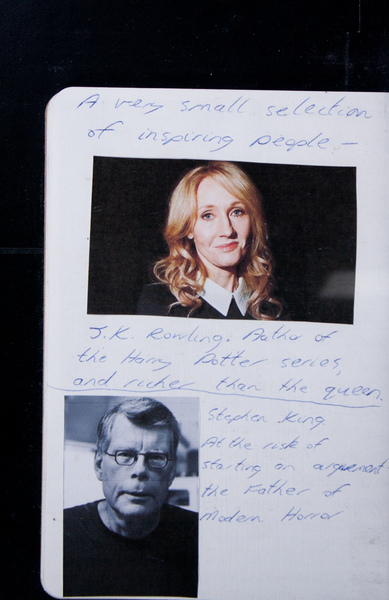 A very small selection
of inspiring people,-
J.K. Rowling. Author of
the Harry Potter series,
and richer than the queen.
Stephen King
At the risk of
starting an arguement
the Father of
Modern Horror